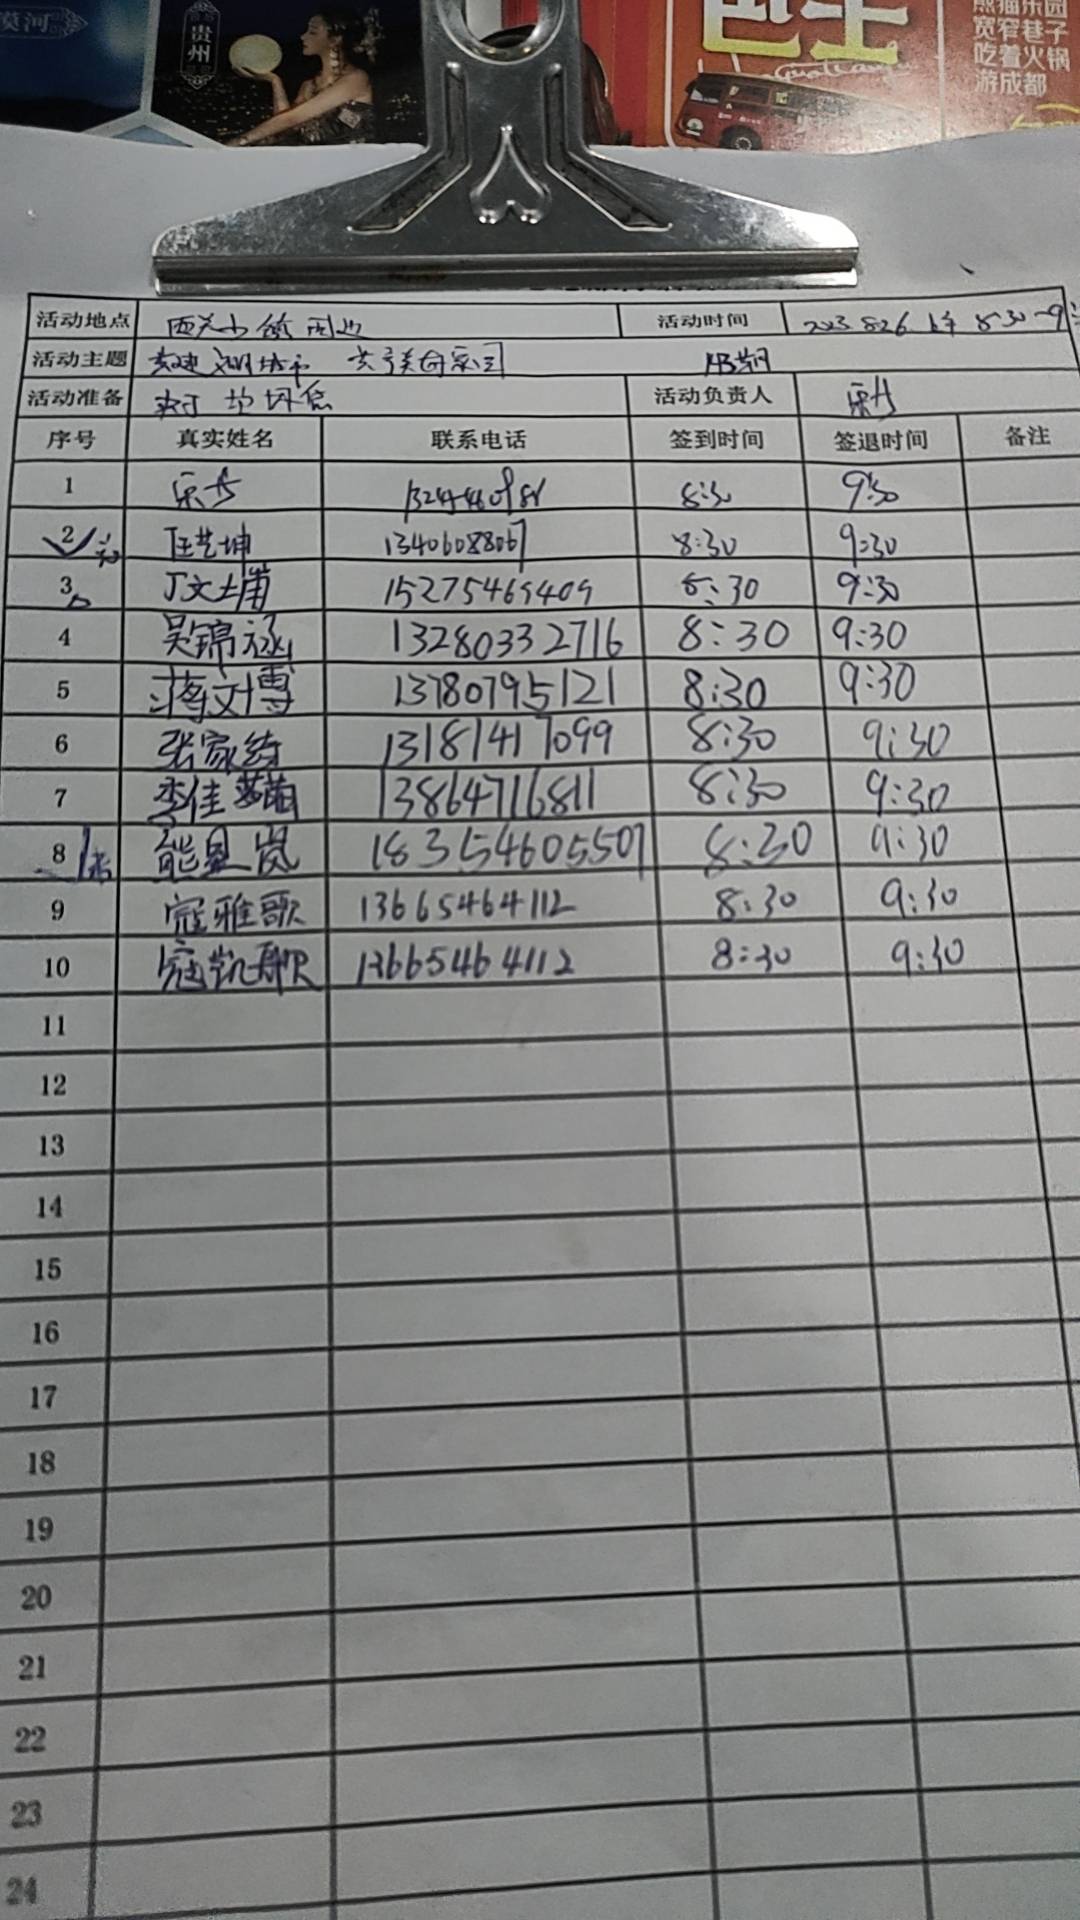 漠河
贵州
巴士
熊猫乐园
宽窄巷子
吃着火锅
游成都
活动地点 西关小镇周边 活动时间 2023.8.26. 上午 8:30-9
活动主题 共建文明城市 共享美好家园
活动准备 垃圾袋 活动负责人
序号 真实姓名 联系电话 签到时间 签退时间 备注
1 8:30 9:30
2 13406088067 8:30 9:30
3 丁文 15275465409 8:30 9:30
4 吴锦涵 13280332716 8:30 9:30
5 蒋文博 13780795121 8:30 9:30
6 张家绮 13181417099 8:30 9:30
7 李佳 13864716811 8:30 9:30
8 岚 183154605507 8:30 9:30
9 寇雅歌 13665464112 8:30 9:30
10 寇凯歌 13665464112 8:30 9:30
11
12
13
14
15
16
17
18
19
20
21
22
23
24